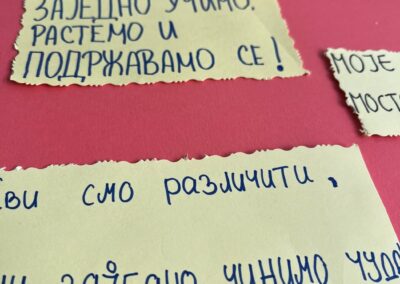 ЗАЈЕДНО УЧИМО,
РАСТЕМО И
ПОДРЖАВАМО СЕ!
МОЈЕ
СМО РАЗЛИЧИТИ,
ЧИНИМО ЧУДА